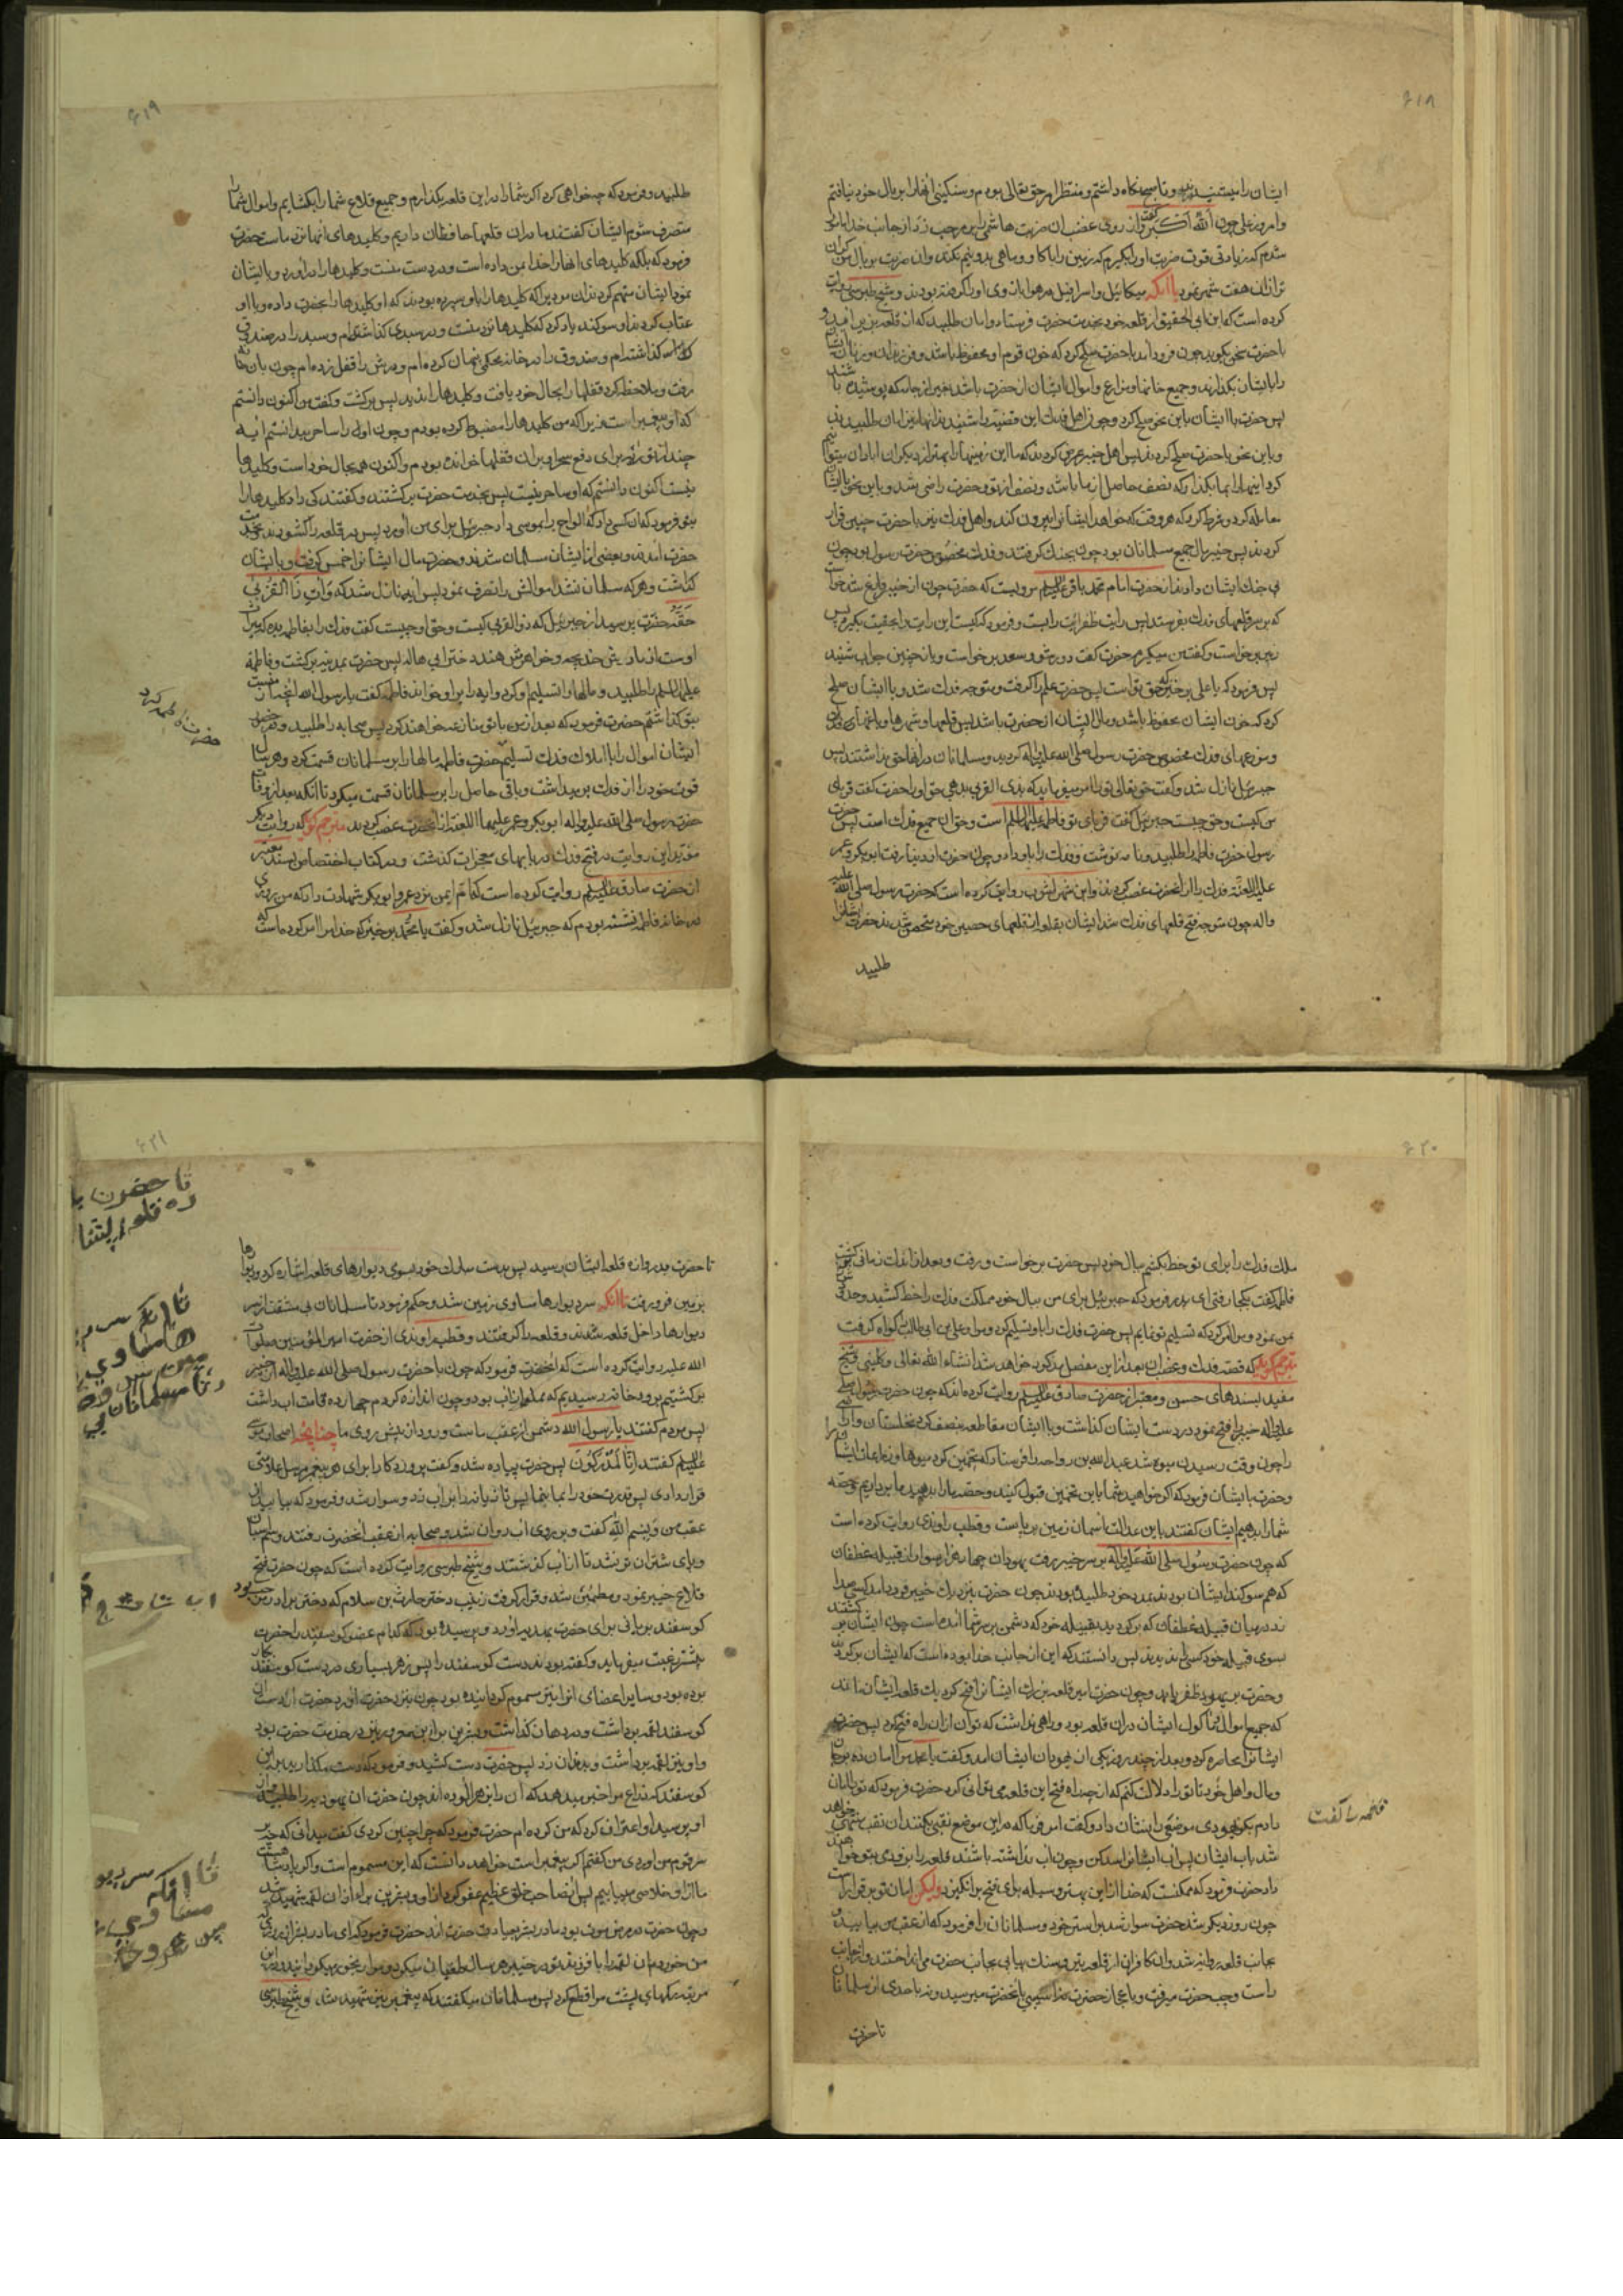 ۶۱۸
ایشان را میشنیدند و تا صبح نگاه داشتم و منتظر امر حق تعالی بودم و سنکینی انها را بر بال خود نیافتم
و امروز علی چون الله اکبر گفت و از روی غضب ان ضربت هاشمی را بر مرحب زد از جانب خدا مامور
شدم که زیادتی قوت ضربت او را بکیرم که زمین را با کاو و ماهی بدو نیم نکند و ان ضربت بر بال من کران
تر از ان هفت شهر نمود با انکه میکائیل و اسرافیل در هوا بازوی او را کرفته بودند و شیخ طبرسی روایت
کرده است که ابن ابی الحقیق از قلعه خود بخدمت حضرت فرستاد و امان طلبید که از قلعه بزیر آید و
با حضرت سخن بکوید چون فرود آمد با حضرت صلح کرد که خون قوم او محفوظ باشد و فرزندان و زنان ایشان
را با ایشان بکذارند و جمیع خانها و مزارع و اموال ایشان از حضرت باشد بغیر از جامه که پوشیده باشند
پس حضرت با ایشان باین نحو صلح کرد و چون اهل فدک این قضیه را شنیدند انها نیز امان طلبیدند
و باین نحو با حضرت صلح کردند پس اهل خیبر عرض کردند که ما این زمینها را بهتر از دیکران ابادان میتوانیم
کرد اینها را بما بکذار که نصف حاصل از ما باشد و نصف از تو و حضرت راضی شد و باین نحو با ایشان
معامله کرد و شرط کرد که هر وقت که خواهد ایشانرا بیرون کند و اهل فدک نیز با حضرت چنین قرار
کردند پس خیبر مال جمیع مسلمانان بود چون بجنک کرفتند و فدک مخصوص حضرت رسول بود چون
بی جنک ایشان دادند از حضرت امام محمد باقر علیه السلم مرویست که حضرت چون از خیبر فارغ شد خواست
که بر سر قلعهای فدک بفرستد پس رایت ظفر آیت را بست و فرمود که کیست این رایت را بحقیت بکیرد پس
زبیر برخواست و کفت من میکیرم حضرت کفت دور شو و سعد برخواست و باز چنین جواب شنید
پس فرمود که یا علی برخیز که حق تو است پس حضرت علم را کرفت و متوجه فدک شد و با ایشان صلح
کرد که خون ایشان محفوظ باشد و مال ایشان از حضرت باشد پس قلعها و شهرها و باغهای
و مزرعهای فدک مخصوص حضرت رسول صلی الله علیه و اله کردید و مسلمانان در انها حق نداشتند پس
جبرئیل نازل شد و کفت حق تعالی تو را امر میفرماید که بذی القربی بدهی حق او را حضرت کفت قربای
من کیست و حق چیست جبرئیل کفت قربای تو فاطمه علیها السلم است و حق ان جمیع فدک است پس حضرت
رسول حضرت فاطمه را طلبید و نامه نوشت و فدک را باو داد و چون حضرت از دنیا رفت ابوبکر و عمر
علیهما اللعنة فدک را از انحضرت غصب کردند و ابن شهر اشوب روایت کرده است که حضرت رسول صلی الله علیه
و اله چون متوجه فتح قلعهای فدک شد ایشان بقلعه از قلعهای حصین خود متحصن شدند حضرت ایشانرا
طلبید
۶۱۹
طلبید و فرمود که چه خواهی کرد اکر شما را در این قلعه بکذارم و جمیع قلاع شما را بکشایم و اموال شما را
متصرف شوم ایشان کفتند ما در ان قلعها حافظان داریم و کلیدهای انها نزد ماست حضرت
فرمود که بلکه کلیدهای انها را خدا بمن داده است و در دست منست و کلیدها را در اورد و با ایشان
نمود ایشان متهم کردند ان مردیرا که کلیدها را باو سپرده بودند که او کلیدها را بحضرت داده و با او
عتاب کردند او سوکند یاد کرد که کلیدها نزد منست و در سبدی کذاشته ام و سبد را در صندوقی
کذاشته ام و صندوق را در خانه محکمی پنهان کرده ام و درش را قفل زده ام چون بان خانه
رفت و ملاحظه کرد قفلها را بحال خود یافت و کلیدها را ندید پس برکشت و کفت من اکنون دانستم
که او پیغمبر است زیرا که من کلیدها را مضبوط کرده بودم و چون او را ساحر میدانستم آیه
چند از توریة برای دفع سحر او بران قفلها خوانده بودم و اکنون همه بحال خود است و کلیدها
نیست اکنون دانستم که او ساحر نیست پس بخدمت حضرت برکشتند و کفتند کی داد کلیدها را
بتو فرمود که ان کسی داد که الواح را بموسی داد جبرئیل برای من آورد پس در قلعه را کشودند و بخدمت
حضرت امدند و بعضی از ایشان مسلمان شدند و حضرت مال ایشانرا خمس کرفت و با ایشان
کذاشت و هر که مسلمان نشد اموالش را تصرف نمود پس این آیه نازل شد که وَآتِ ذَا الْقُرْبَى
حَقَّهُ حضرت پرسید از جبرئیل که ذو القربی کیست و حق او چیست کفت فدک را بفاطمه بده که میراث
اوست از مادرش خدیجه و خواهرش هند دختر ابی هاله پس حضرت بمدینه برکشت و فاطمه
علیها السلم را طلبید و مالها را تسلیم او کرد و ایه را بر او خواند فاطمه کفت یا رسول الله انچه از منست
بتو کذاشتم حضرت فرمود که بعد از من با تو منازعه خواهند کرد پس صحابه را طلبید و در حضور
ایشان اموال را با املاک فدک تسلیم حضرت فاطمه مالها را بر مسلمانان قسمت کرد و هر سال
قوت خود را از فدک برمیداشت و باقی حاصل را بر مسلمانان قسمت میکرد تا انکه بعد از وفات
حضرت رسول صلی الله علیه و اله ابوبکر و عمر علیهما اللعنة از انحضرت غصب کردند مترجم کوید که روایت دیکر
مؤید این روایت در فتح فدک در بابهای معجزات کذشت و در کتاب اختصاص بسند معتبر
از حضرت صادق علیه السلم روایت کرده است که ام ایمن نزد عمر و ابوبکر شهادت داد که من روزی
در خانه فاطمه نشسته بودم که جبرئیل نازل شد و کفت یا محمد برخیز که خدا مرا امر کرده است که
حضرت فاطمه کرد
۶۲۰
ملک فدک را برای تو خط بکشم ببال خود پس حضرت برخواست و رفت و بعد از اندک زمانی برکشت
فاطمه کفت بکجا رفتی ای پدر فرمود که جبرئیل برای من ببال خود مملکت فدک را خط کشید و حدودش
بمن نمود و مرا امر کرد که تسلیم تو نمایم پس حضرت فدک را باو تسلیم کرد و علی بن ابی طالب را کواه کرفت
مترجم کوید که قصه فدک و غصب ان بعد از این مفصل مذکور خواهد شد انشاء الله تعالی و کلینی و شیخ
مفید بسندهای حسن و معتبر از حضرت صادق علیه السلم روایت کرده اند که چون حضرت رسول صلی
الله علیه و اله خیبر را فتح نمود در دست ایشان کذاشت و با ایشان مقاطعه بنصف کرد نخلستان و
را چون وقت رسیدن میوه شد عبد الله بن رواحه را فرستاد که تخمین کرد میوها و زراعات ایشان
و حضرت با ایشان فرمود که اکر خواهید شما باین تخمین قبول کنید و حصه ما را بدهید و ما برداریم و حصه
شما را بدهیم ایشان کفتند باین عدالت آسمان و زمین برپاست و قطب راوندی روایت کرده است
که چون حضرت رسول صلی الله علیه و اله بر سر خیبر رفت یهودان چهار هزار سوار از قبیله غطفان
که هم سوکند ایشان بودند بمدد خود طلبیده بودند چون حضرت بنزدیک خیبر فرود امد کسی صدا
زد در میان قبیله غطفان که برکردید بقبیله خود که دشمن بر سر شما آمده است چون ایشان برکشتند
بسوی قبیله خود کسی را ندیدند پس دانستند که این از جانب خدا بوده است که ایشان برکردند
و حضرت بر یهود ظفر یابد و چون حضرت سایر قلعه بزرک ایشانرا فتح کرد یک قلعه ایشان ماند
که جمیع اموال و ماکول ایشان در ان قلعه بود و راهی نداشت که توان از ان راه فتح کرد پس حضرت
ایشانرا محاصره کرد و بعد از چند روز یکی از یهودان ایشان امد و کفت یا محمد مرا امان ده بر جان
و مال و اهل خود تا تو را دلالت کنم که از چه راه فتح این قلعه می توانی کرد حضرت فرمود که تو را امان
دادم بکو یهودی موضعی را نشان داد و کفت امر فرما که در این موضع نقبی بکنند ان نقب منتهی خواهد
شد باب ایشان پس اب ایشانرا سد کن و چون اب نداشته باشند قلعه را بزودی بتو خواهند
داد حضرت فرمود که ممکنست که خدا از این بهتر وسیله برای فتح برانکیزد ولیکن امان تو برقرار است
چون روز دیکر شد حضرت سوار شد بر استر خود و مسلمانان را فرمود که از عقب من بیایید و
بجانب قلعه روانه شد و ان کافران از قلعه تیر و سنک پیاپی بجانب حضرت می انداختند و از جانب
راست و چپ حضرت میرفت و باعجاز حضرت هیچ اسیبی بانحضرت نمیرسید و نه باحدی از مسلمانان
تا حضرت
فاطمه را کفت
۶۲۱
تا حضرت بدروازه قلعه ایشان رسید پس بدست مبارک خود بسوی دیوارهای قلعه اشاره کرد و دیوارها
بزمین فرو رفت تا انکه سر دیوارها مساوی زمین شد و حکم فرمود تا مسلمانان بی مشقت از سر
دیوارها داخل قلعه شدند و قلعه را کرفتند و قطب راوندی از حضرت امیر المؤمنین صلوات
الله علیه روایت کرده است که انحضرت فرمود که چون با حضرت رسول صلی الله علیه و اله از خیبر
برکشتیم برودخانه رسیدیم که مملو از اب بود و چون اندازه کردم چهارده قامت اب داشت
پس مردم کفتند یا رسول الله دشمن از عقب ماست و رود از پیش روی ما چنانچه اصحاب موسی
علیه السلم کفتند اِنَّا لَمُدْرَكُونَ پس حضرت پیاده شد و کفت پروردکارا برای هر پیغمبر مرسل علامتی
قرار دادی پس قدرت خود را بما بنما پس تازیانه را بر اب زد و سوار شد و فرمود که بیایید از
عقب من و بسم الله کفت و بر روی اب روان شد و صحابه از عقب انحضرت رفتند و سم اسبان
و پای شتران تر نشد تا از اب کذشتند و شیخ طبرسی روایت کرده است که چون حضرت فتح
قلاع خیبر نمود و مطمئن شد و قرار کرفت زینب دختر حارث بن سلام که دختر برادر مرحب بود
کوسفند بریانی برای حضرت بهدیه اورد و پرسیده بود که کدام عضو کوسفند را حضرت
بیشتر رغبت میفرماید و کفته بودند دست کوسفند را پس زهر بسیاری در دست کوسفند بکار
برده بود و سایر اعضای انرا نیز مسموم کردانیده بود چون بنزد حضرت اورد حضرت از دست ان
کوسفند لقمه برداشت و در دهان کذاشت و بشر بن براء بن معرور نیز در خدمت حضرت بود
و او نیز لقمه برداشت و بدهان زد پس حضرت دست کشید و فرمود که دست مکذارید بر این
کوسفند که ذراع مرا خبر میدهد که آن را بزهر آلوده اند چون حضرت ان یهودیه را طلبید و از
او پرسید او اعتراف کرد که من کرده ام حضرت فرمود که چرا چنین کردی کفت میدانی که چه بر
سر قوم من اوردی من کفتم اکر پیغمبر است خواهد دانست که این مسموم است و اکر پادشاه است
ما از او خلاصی میابیم پس انصاحب خلق عظیم عفو کرد از او و بشر بن براء از ان لقمه شهید شد
و چون حضرت در مرض موت بود مادر بشر بعیادت حضرت امد حضرت فرمود که ای مادر بشر از روزی که
من خوردم ان لقمه را با فرزند تو در خیبر هر سال طغیان میکرد و مرا رنجور میکردانید و این
مرتبه رکهای پشت مرا قطع کرد پس مسلمانان میکفتند که پیغمبر نیز شهید شد و شیخ طبرسی
تا حضرت
تا انکه سر
مساوی
تا مسلمانان بی
تا انکه سر
مساوی